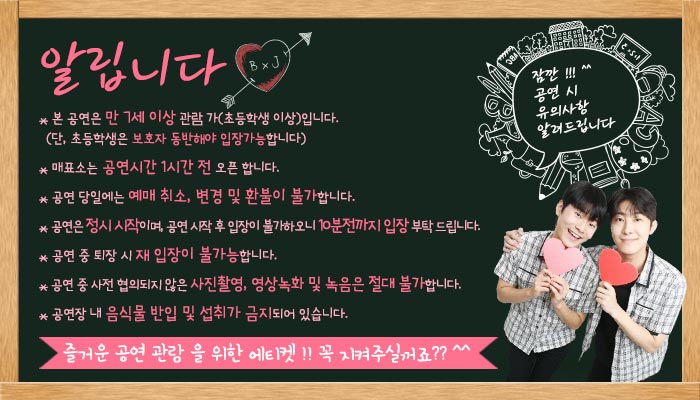 알립니다
B x J
잠깐 !!! ^^
공연 시
유의사항
알려드립니다
* 본 공연은 만 7세 이상 관람 가(초등학생 이상)입니다.
(단, 초등학생은 보호자 동반해야 입장가능합니다)
* 매표소는 공연시간 1시간 전 오픈 합니다.
* 공연 당일에는 예매 취소, 변경 및 환불이 불가합니다.
* 공연은 정시 시작이며, 공연 시작 후 입장이 불가하오니 10분전까지 입장 부탁 드립니다.
* 공연 중 퇴장 시 재 입장이 불가능합니다.
* 공연 중 사전 협의되지 않은 사진촬영, 영상녹화 및 녹음은 절대 불가합니다.
* 공연장 내 음식물 반입 및 섭취가 금지되어 있습니다.
즐거운 공연 관람 을 위한 에티켓 !! 꼭 지켜주실꺼죠?? ^^